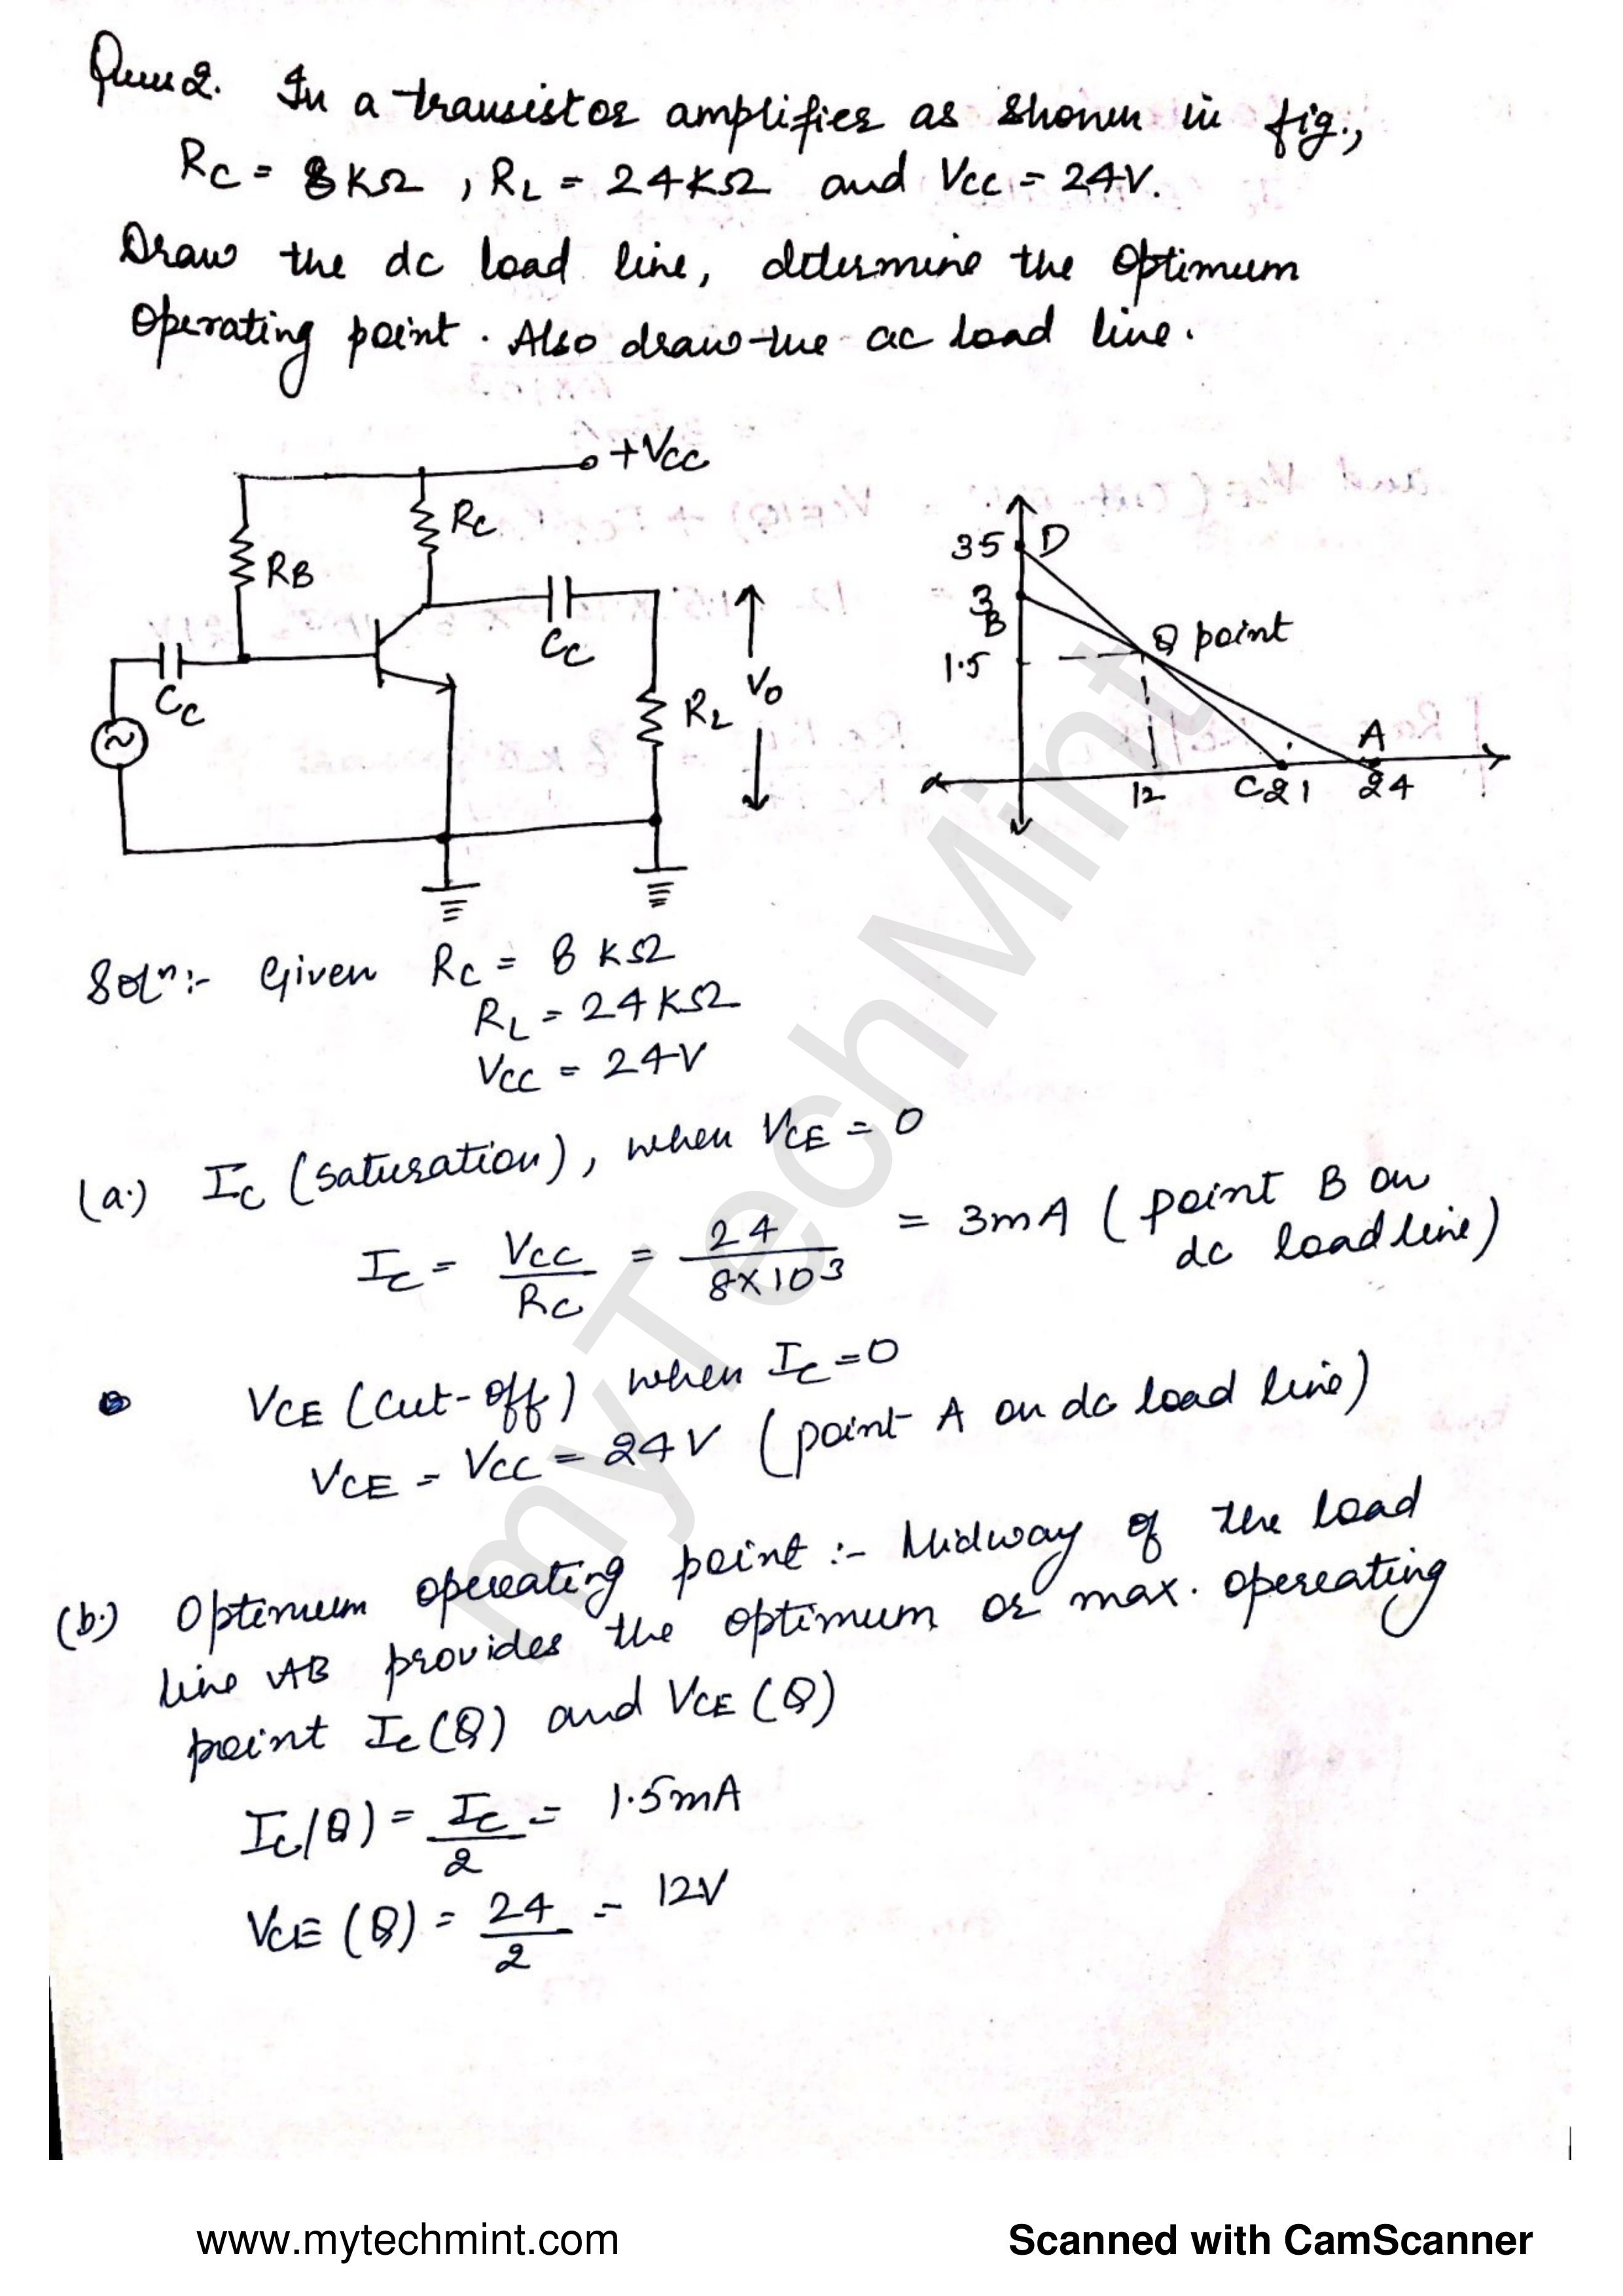 Ques 2. In a transistor amplifier as shown in fig.,
RC = 8KΩ , RL = 24KΩ and VCC = 24V.
Draw the dc load line, determine the optimum
operating point. Also draw the ac load line.
+VCC
RC
RB
CC
CC
RL
V0
35 D
3
B
1.5
Q point
A
12
C21
24
Solⁿ:- Given RC = 8 KΩ
RL = 24KΩ
VCC = 24V
(a.) IC (saturation), when VCE = 0
IC = VCC/RC = 24/8×10³ = 3mA (point B on
dc load line)
VCE (cut-off) when IC=0
VCE = VCC = 24V (point A on dc load line)
(b.) Optimum operating point :- Midway of the load
line AB provides the optimum or max. opereating
point IC(Q) and VCE (Q)
IC(Q) = IC/2 = 1.5mA
VCE (Q) = 24/2 = 12V
myTechMint
www.mytechmint.com
Scanned with CamScanner